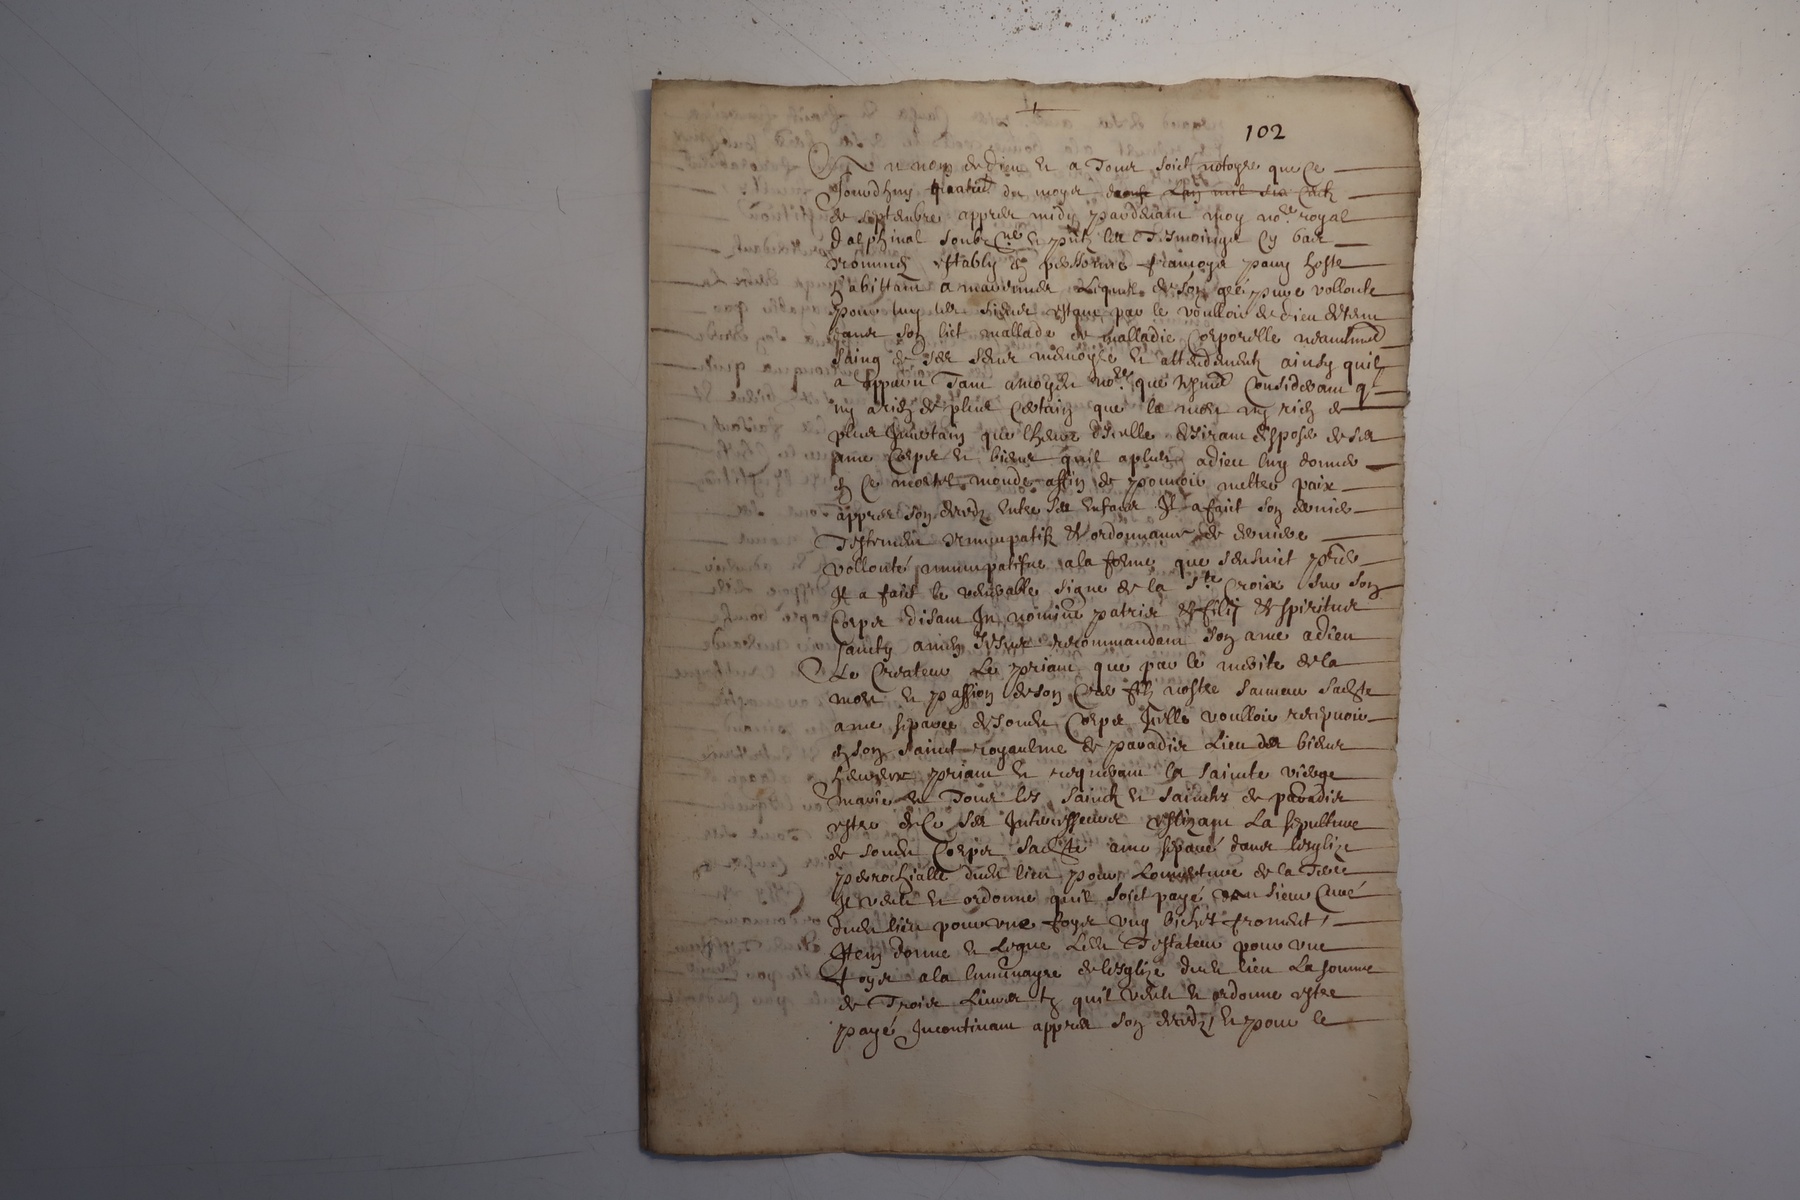 102
Au nom de Dieu et a Tous soict notoyre que Ce
Jourdhuy quatrie du moys
de septembre appres midy pardevant moy nore royal
dalphinal soubsne et pnts les Tesmoings cy bas
nommes estably en personne francoys
habittant a lequel de son gré pure vollonte
pour luy les siens estant par le voulloir de dieu detenu
dans son lict mallade de malladie Corporelle neantmoings
saing de ses sens memoyre et attendement ainsy quil
a apparu Tant a moydit nore que tesmoings Considerant q
ny a rien de plus Certain que la mort ny rien de
plus Incertain que lheure dicelle desirant disposer de ses
ame Corps et biens quil a pleu a dieu luy donner
en Ce mortel monde affin de pouvoir mettre paix
appres son deces entre ses enfans Il a faict son dernier
Testement nuncupatif et ordonnance de derniere
vollonté nuncupatifve a la forme que sensuict pres
Il a faict le venerable signe de la Ste Croix sur son
Corps disant In nomine patris et filij et spiritus
sancty amen recommandant son ame a dieu
Le Createur Le priant que par le merite de la
mort et passion de son cher filz nostre sauveur sadite
ame separee de sondit Corps Icelle voulloir recepvoir
en son sainct royaulme de paradis Lieu des biens
heureux priant et requerant la saincte vierge
marie et Tous les saincts et sainctes de paradis
estre de Ce ses Intercesseurs eslizant La sepulture
de sondit Corps sadite ame separé dans lesglize
perrochialle dudit lieu pour Louverture de la Terre
Il veult et ordonne quil soict payé au sieur Curé
dudit lieu pour une foys ung bichet froment
Item donne et Legue Ledit Testateur pour une
foys a la luminayre de lesglize dudit lieu La somme
de Trois Livres tz quil veult et ordonne estre
payé Incontinant appres son deces et pour le